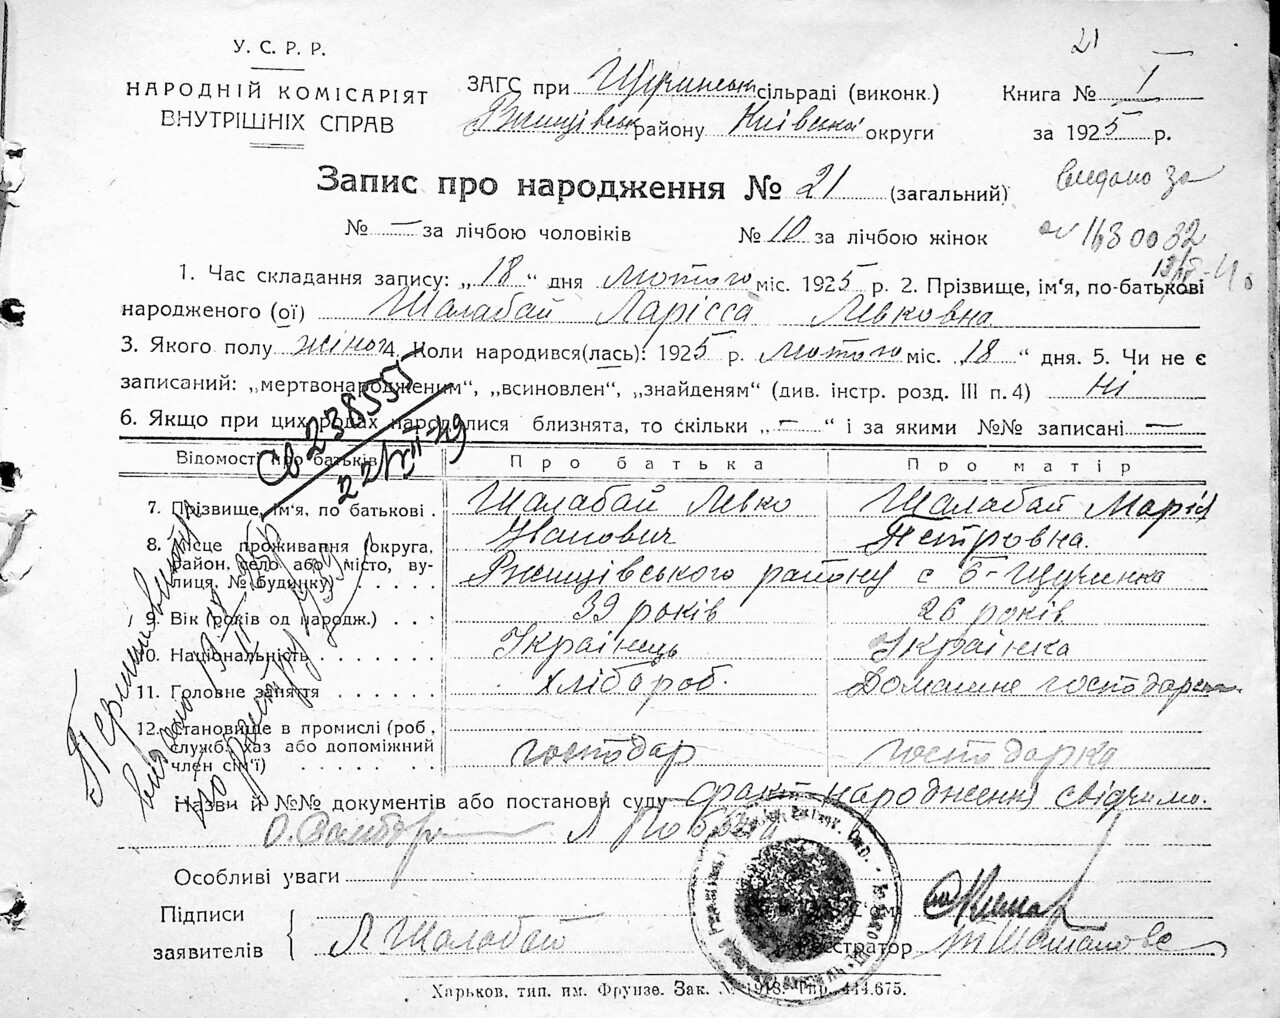 21
У. С. Р. Р.
НАРОДНІЙ КОМІСАРІЯТ
ВНУТРІШНІХ СПРАВ
ЗАГС при Щучинськ сільраді (виконк.)
Ржищівськ району Київської округи
Книга № I
за 1925 р.
Запис про народження № 21 (загальний)
видано за
№ — за лічбою чоловіків № 10 за лічбою жінок
1. Час складання запису: „18“ дня лютого міс. 1925 р. 2. Прізвище, ім'я, по-батькові
народженого (ої) Шалабай Ларісса Левковна
3. Якого полу жіноч 4. Коли народився(лась): 1925 р. лютого міс. „18“ дня. 5. Чи не є
записаний: „мертвонародженим“, „всиновлен“, „знайденям“ (див. інстр. розд. III п. 4) Ні
6. Якщо при цих родах народилися близнята, то скільки „—“ і за якими №№ записані —
Св 238555
Відомості про батьків Про батька Про матір
7. Прізвище, ім'я, по батькові . Шалабай Левко Шалабай Марія
Іванович Петровна.
8. Місце проживання (округа, район, село або місто, вулиця, № будинку) Ржищівського району с Б-Щучинка
9. Вік (років од народж.) . . . 39 років 26 років
10. Національність . . . . . . Українець Українка
11. Головне заняття . . . . . . хлібороб. Домашне господарс
12. Становище в промислі (роб, служб, хаз або допоміжний член сім'ї) . . . . . . господар господарка
Назви й №№ документів або постанови суду факт народження свідчимо.
Особливі уваги
Підписи
заявителів Л Шалабай
Реєстратор
Харьков, тип. им. Фрунзе. Зак. № 1918. Тир. 444.675.